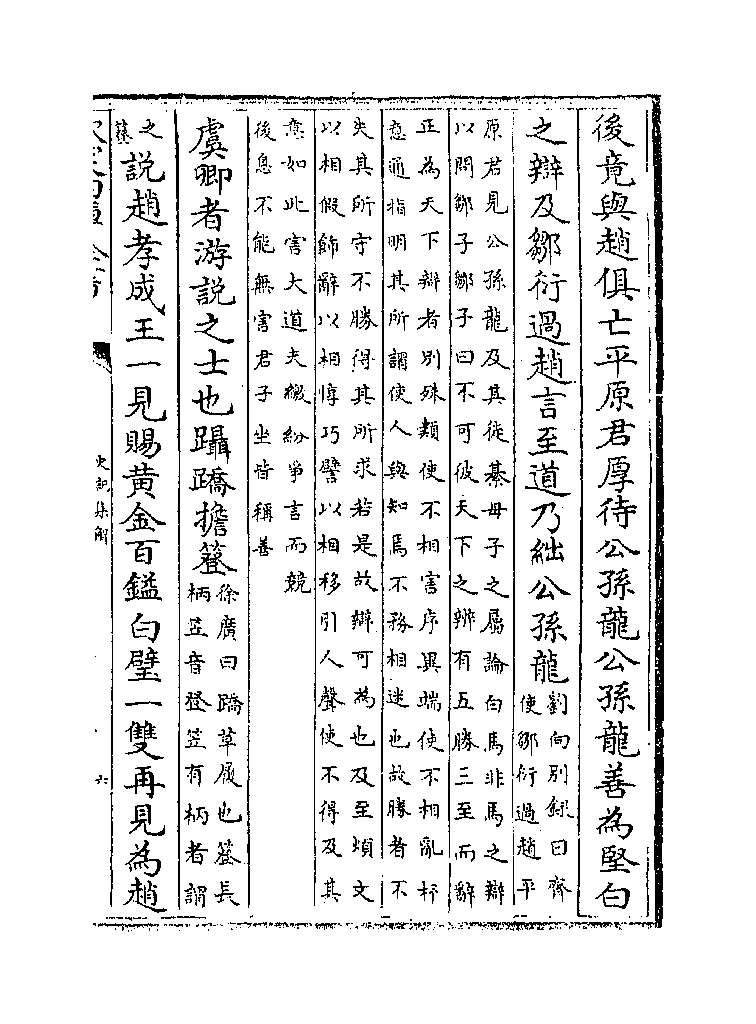 後竟與趙俱亡平原君厚待公孫龍公孫龍善為堅白
之辯及鄒衍過趙言至道乃絀公孫龍
劉向別録曰齊
使鄒衍過趙平
原君見公孫龍及其徒綦母子之屬論白馬非馬之辯
以問鄒子鄒子曰不可彼天下之辨有五勝三至而辭
正為天下辯者別殊類使不相害序異端使不相亂杼
意通指明其所謂使人與知焉不務相迷也故勝者不
失其所守不勝得其所求若是故辯可為也及至煩文
以相假飾辭以相惇巧譬以相移引人聲使不得及其
意如此害大道夫繳紛爭言而競
後息不能無害君子坐皆稱善
虞卿者游說之士也躡蹻擔簦
徐廣曰蹻草履也簦長
柄笠音登笠有柄者謂
之
簦
說趙孝成王一見賜黄金百鎰白璧一雙再見為趙
史記集解
六